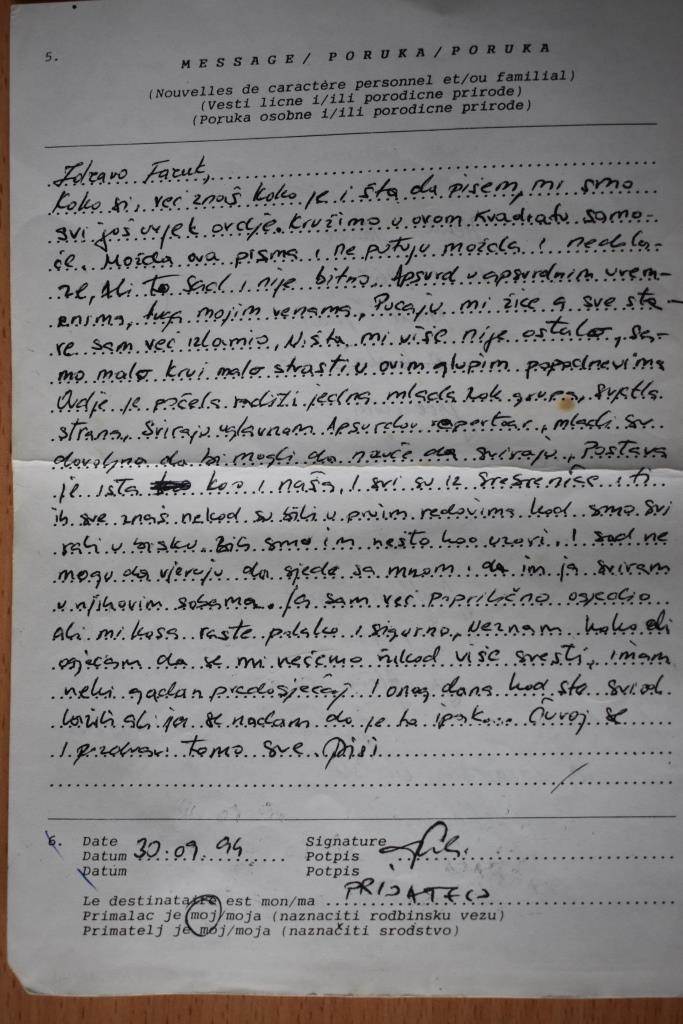 5.
MESSAGE/ PORUKA/PORUKA
(Nouvelles de caractère personnel et/ou familial)
(Vesti licne i/ili porodicne prirode)
(Poruka osobne i/ili porodicne prirode)
Zdravo Faruk,
Kako si, već znaš kako je i šta da pišem, mi smo
svi još uvjek ovdje. Kružimo u ovom kvadratu samo-
će. Možda ova pisma i ne putuju možda i nedola-
ze, Ali to sad i nije bitno. Apsurd u apsurdnim vrem-
enima, tuga mojim venama, Pucaju mi žice a sve sta-
re sam već izlomio, Ništa mi više nije ostalo, sa-
mo malo krvi malo strasti u ovim glupim popodnevima
Ovdje je počela raditi jedna mlada rok grupa, Svjetla
strana, Sviraju uglavnom Apsurdov repertoar, mladi su
dovoljno da bi mogli da nauče da sviraju, Postava
je ista kao i naša, I svi su iz Srebrenice i ti
ih sve znaš nekad su bili u prvim redovima kad smo svi
rali u disku. Bili smo im nešto kao uzori. I sad ne
mogu da vjeruju da sjede sa mnom i da im ja sviram
u njihovim sobama. Ja sam već poprilično osjedio
Ali mi kosa raste polako i sigurno, neznam kako ali
osjećam da se mi nećemo nikad više sresti, imam
neki gadan predosjećaj I onog dana kad ste svi od
lazili ali ja se nadam da je to ipak... Čuvaj se
I pozdravi tamo sve Piši
6. Date
Datum 30.09.94
Datum
Signature
Potpis
Potpis
Le destinataire est mon/ma PRIJATELJ
Primalac je moj/moja (naznaciti rodbinsku vezu)
Primatelj je moj/moja (naznačiti srodstvo)